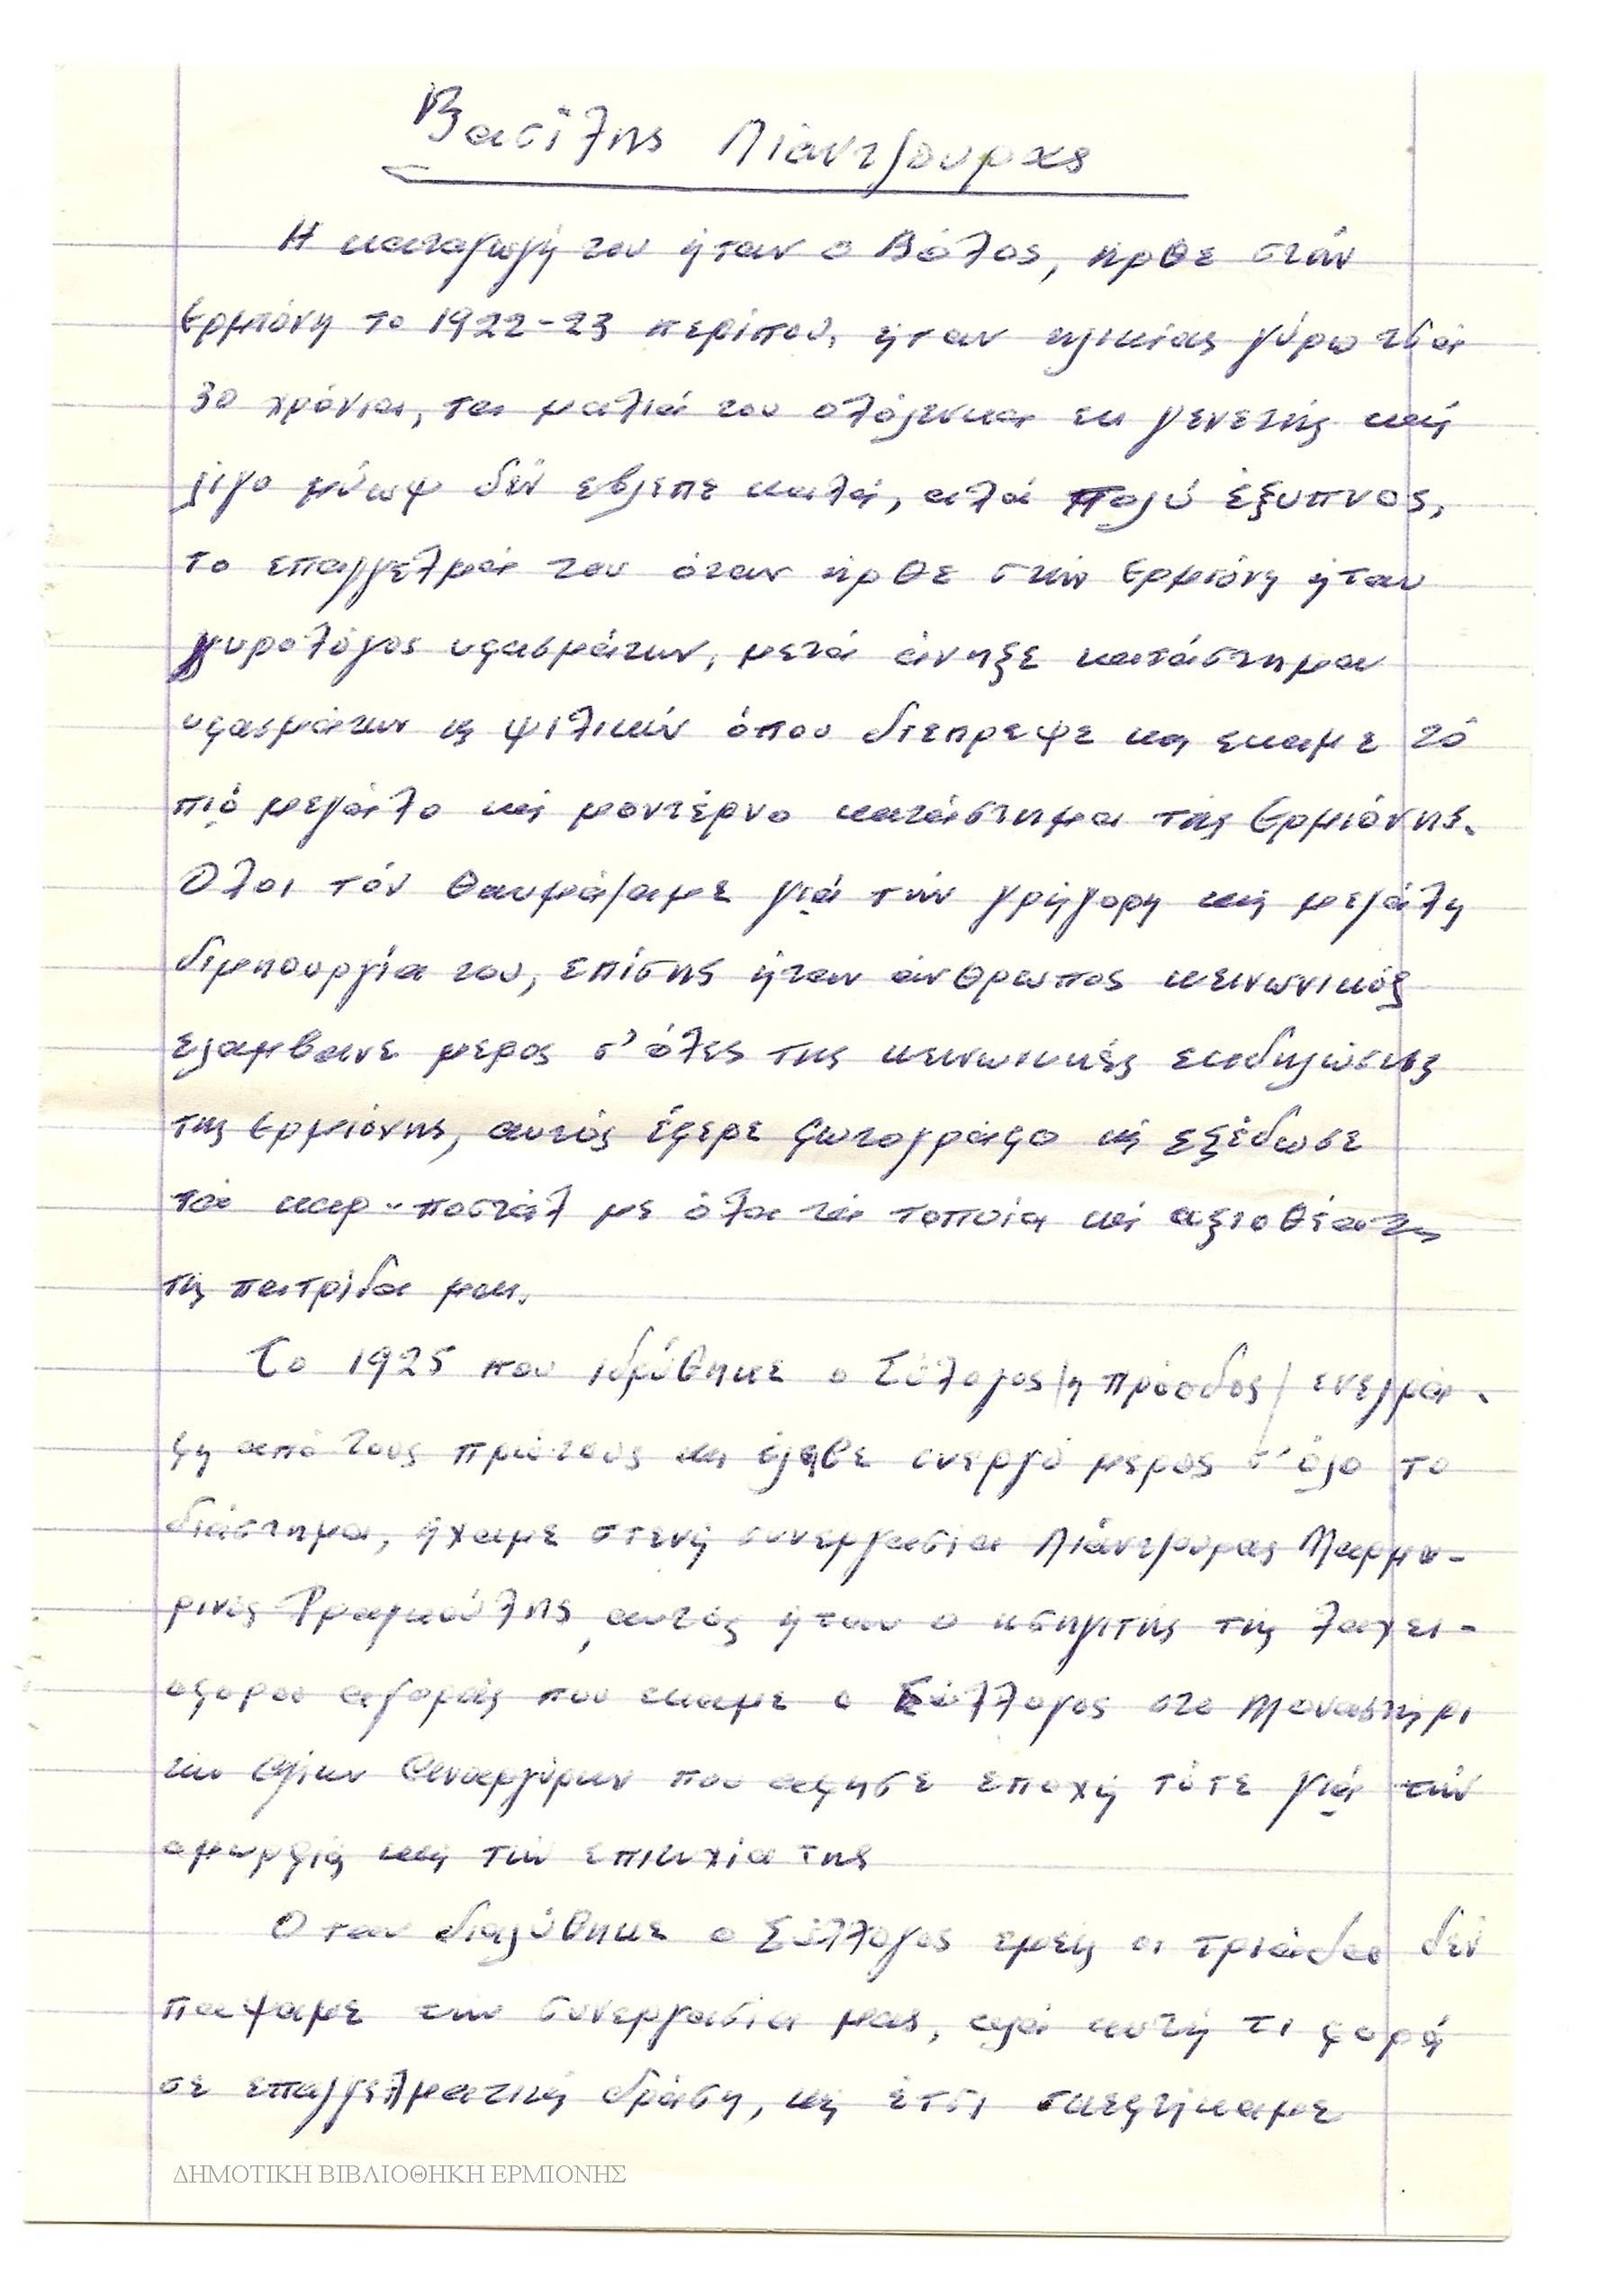 Βασίλης Λιάντζουρας
Η καταγωγή του ήταν ο Βόλος, ηρθε στήν
Ερμιόνη το 1922-23 περίπου, ήταν ηλικίας γύρω στά
30 χρόνια, τα μαλιά του ολόλευκα εκ γενετής καί
λίγο μύωψ δέν εβλεπε καλά, αλά πολύ έξυπνος,
το επαγγελμά του όταν ηρθε στήν Ερμιόνη ήταν
γυρολόγος υφασμάτων, μετά άνηξε κατάστημα
υφασμάτων κ ψιλικών όπου διεπρεψε κα εκαμε τό
πιό μεγάλο καί μοντέρνο κατάστημα τής Ερμιόνης.
Ολοι τόν θαυμάζαμε γιά τήν γρήγορη καί μεγάλη
διμηουργία του, επίσης ήταν άνθρωπος κεινωνικός
ελαμβανε μερος σ' όλες της κεινωνικές εκδηλώσης
της Ερμιόνης, αυτός έφερε φωτογράφο κί εξέδωσε
τά καρ-ποστάλ με όλα τά τοπεία καί αξιοθέατα
τής πατρίδα μας.
Το 1925 που ιδρύθηκε ο Σύλογος /η πρόοδος/ ενεγρά-
φη από τους πρώτους κα έλαβε ενεργό μέρος σ' όλο το
διάστημα, ήχαμε στενή συνεργασία Λιάντζουρας Μαρμα-
ρινός Φραγκούλης, αυτός ήταν ο ησηγιτής τής λαχει-
οφορου αγοράς που εκαμε ο Σύλλογος στο Μοναστήρι
τών Αγίων Αναργύρων που αφησε εποχή τότε γιά τήν
ομωρφιά καί τήν επιτυχία της
Οταν διαλύθηκε ο Σύλλογος εμείς οι τριάδα δέν
παψαμε τήν συνεργασία μας, αλά αυτή τι φορά
σε επαγγελματική δράση, κί έτσι σκεφτήκαμε
ΔΗΜΟΤΙΚΗ ΒΙΒΛΙΟΘΗΚΗ ΕΡΜΙΟΝΗΣ